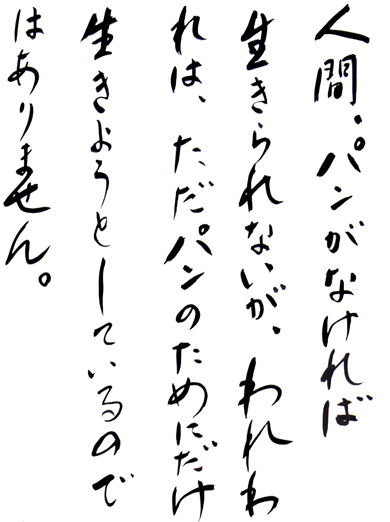 人間。パンがなければ
生きられないが、われわ
れは、ただパンのためにだけ
生きようとしているので
はありません。